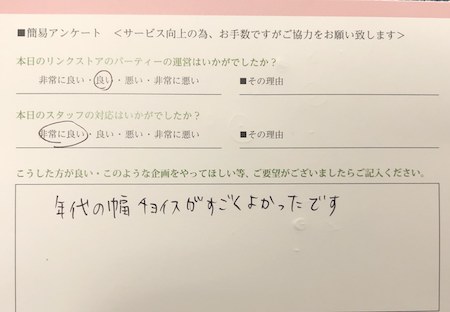 ■簡易アンケート ＜サービス向上の為、お手数ですがご協力をお願い致します＞
本日のリンクストアのパーティーの運営はいかがでしたか？
非常に良い・良い・悪い・非常に悪い ■その理由
本日のスタッフの対応はいかがでしたか？
非常に良い・良い・悪い・非常に悪い ■その理由
こうした方が良い・このような企画をやってほしい等、ご要望がございましたらご記入ください。
年代の幅 チョイスがすごくよかったです